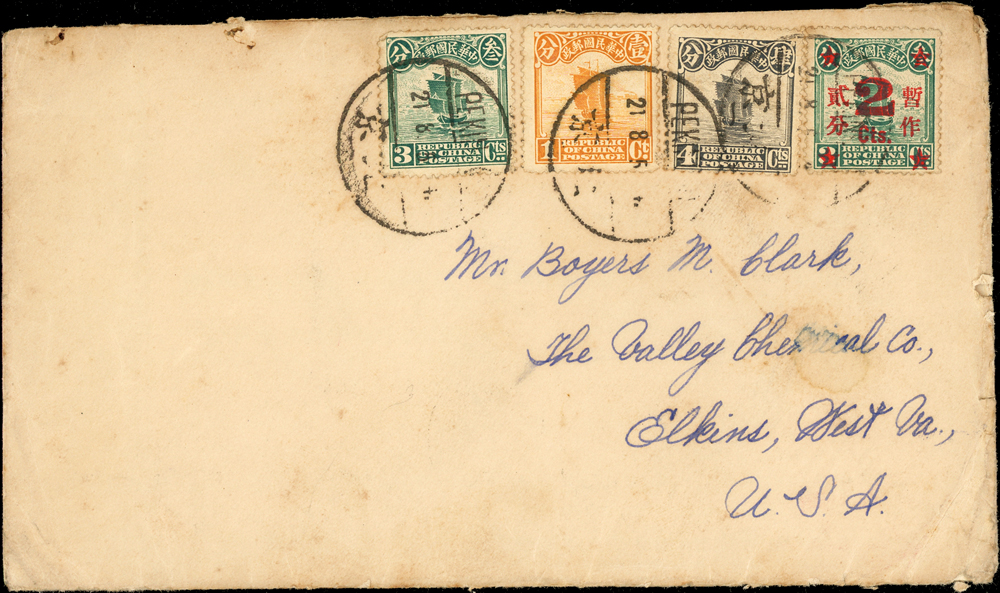 分 中華民國郵政 叁
3 REPUBLIC OF CHINA POSTAGE Cts
分 中華民國郵政 壹
1 REPUBLIC OF CHINA POSTAGE Ct
分 中華民國郵政 肆
4 REPUBLIC OF CHINA POSTAGE Cts
中華民國郵政
暫作
貳分
2
Cts.
3 REPUBLIC OF CHINA POSTAGE
21
8
京
PEKIN
21
8
京
21
Mr. Boyers M. Clark,
The Valley Chemical Co.,
Elkins, West Va.,
U. S. A.